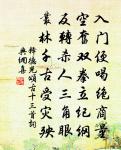 入门便喝绝商量
空奮双拳立纪纲
反转杀人三角眼
叢林千古受灾殃
释德光颂古十三首词
典網喜